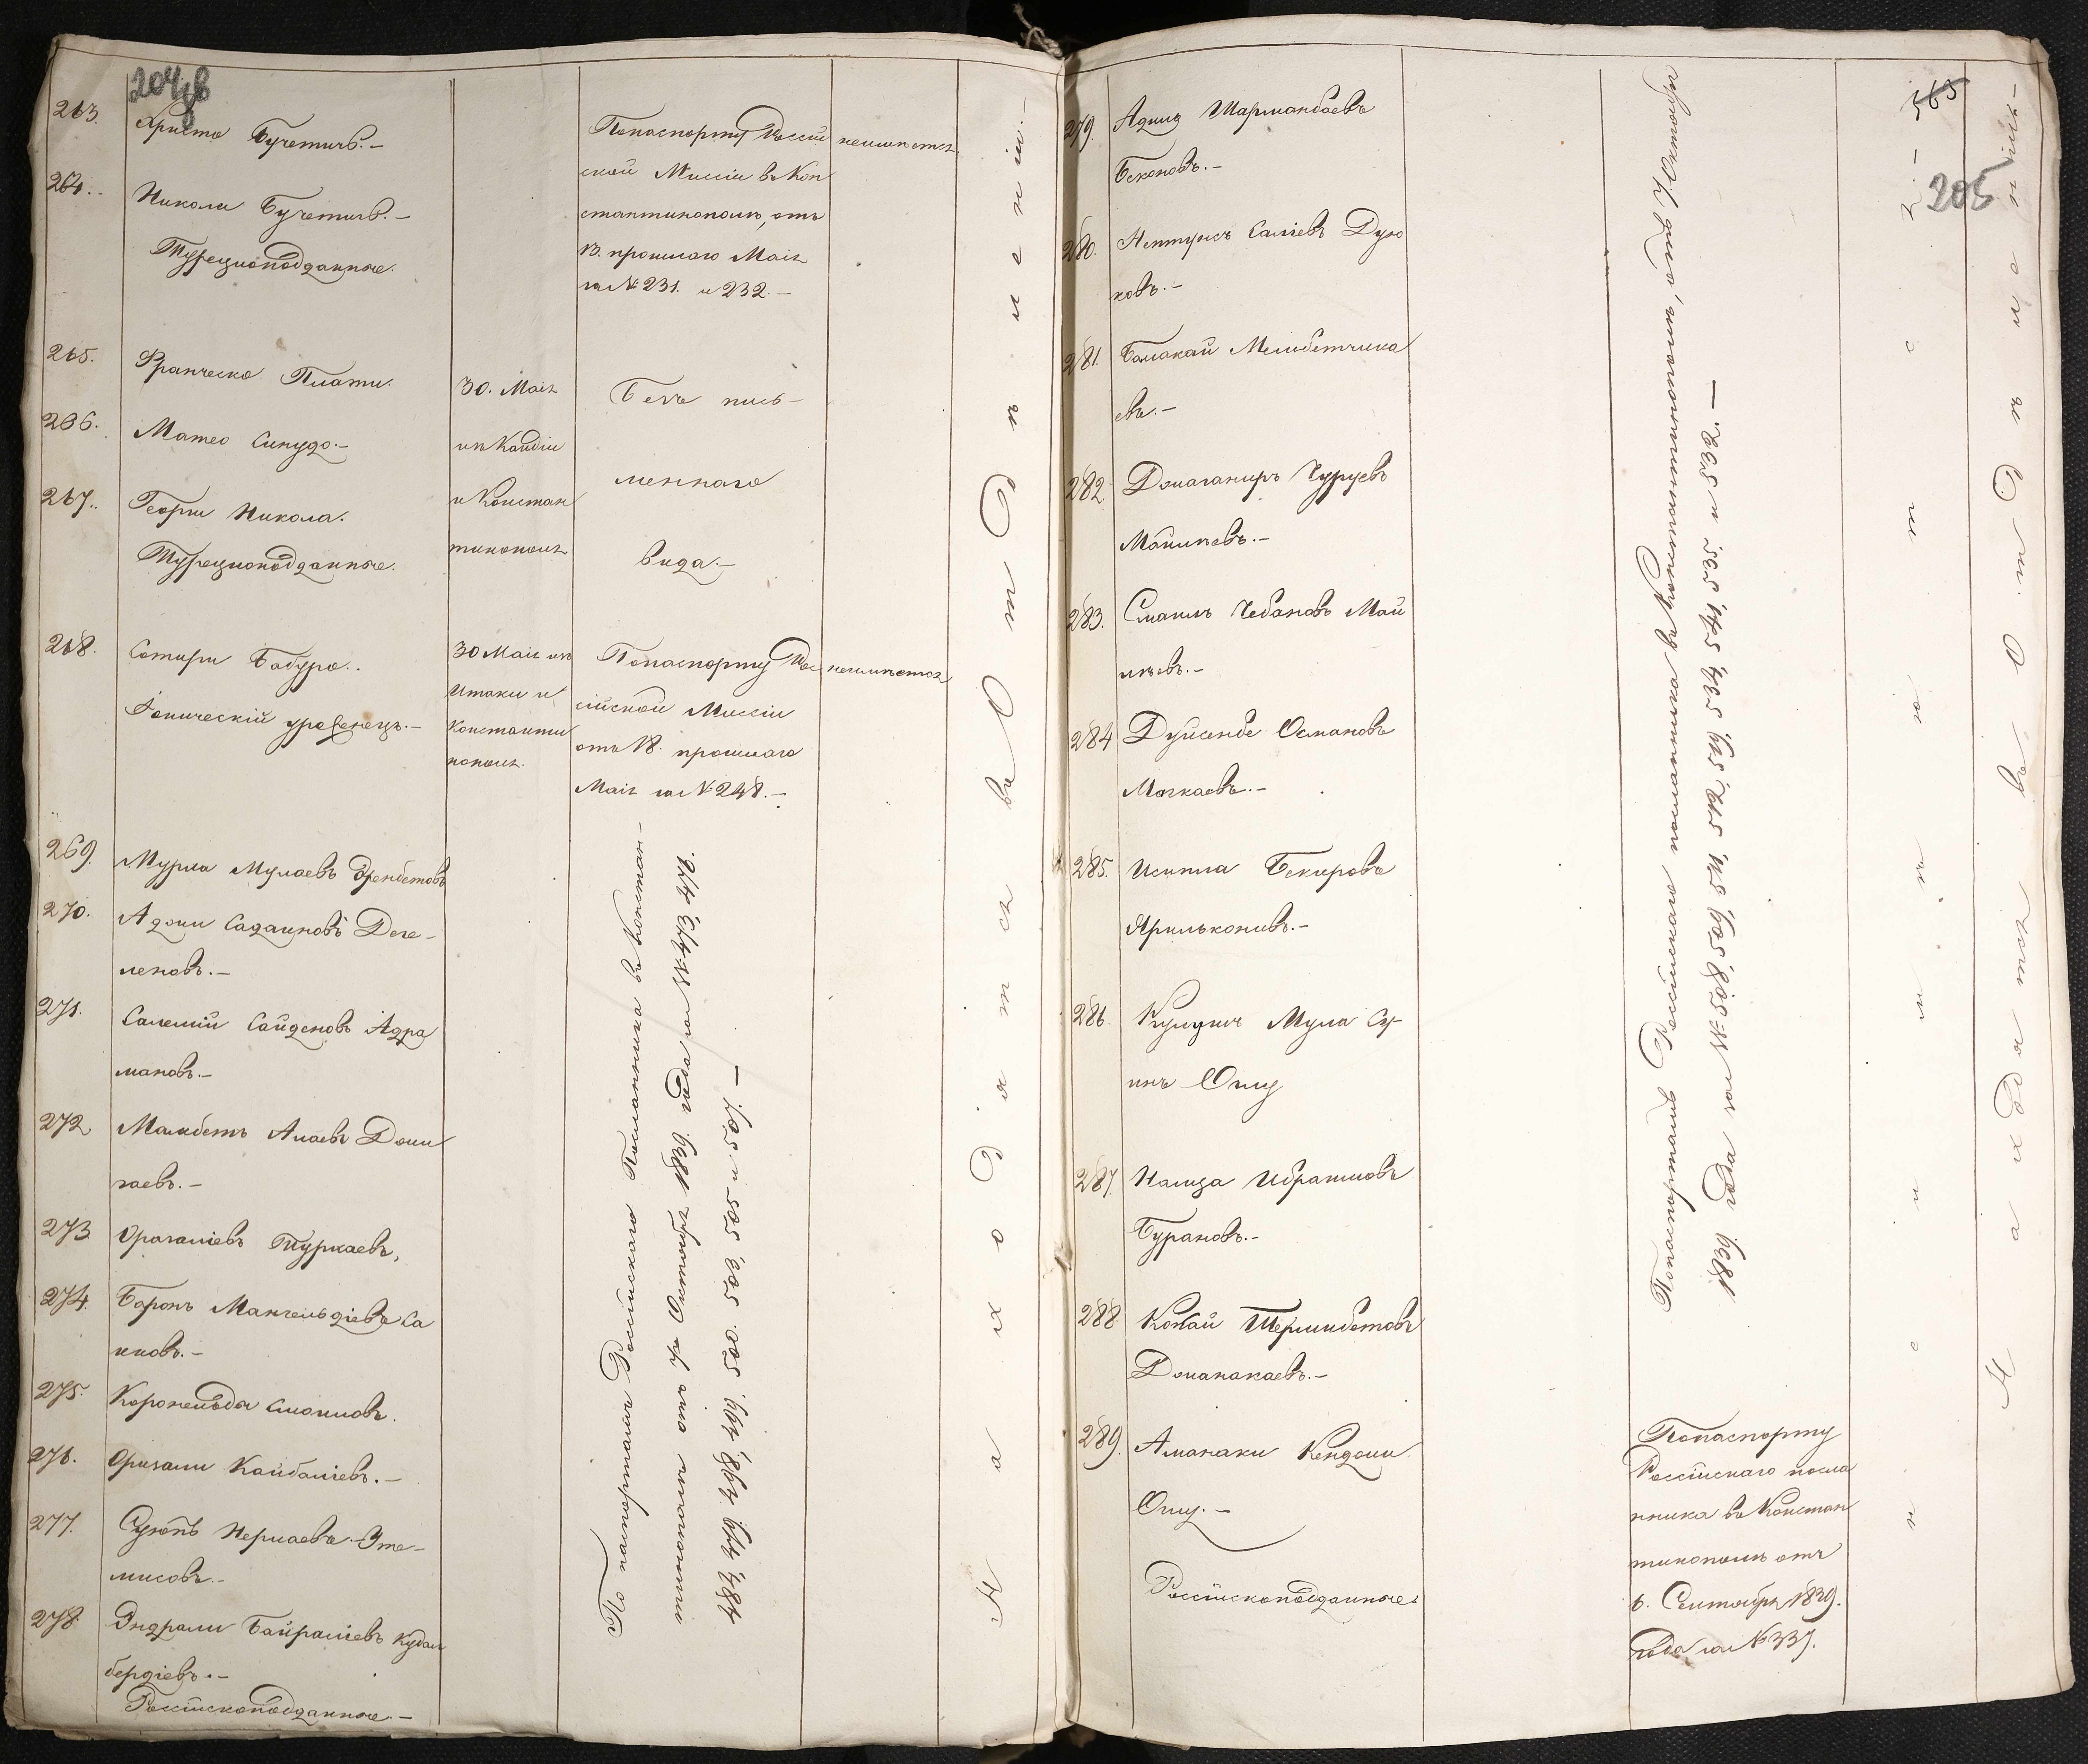 204 об
263.
Христо Бучетичъ.-
264.
Никола Бучетичъ.-
Турецкоподданные.
Попаспорту Россий
ской Миссіи въ Кон
стантинополѣ, отъ
13. прошлаго Маія
за №231. и 232.-
неимѣется
265.
Франческо Плати.
266.
Матео Синудо.-
267.
Георги Никола.
Турецкоподданные.
30. Маія
изъ Кандіи
и Констан
тинополя
Безъ пись-
меннаго
вида.-
268.
Сотири Бадуро.
Іоническій уроженецъ.-
30 Маія изъ
Итаки и
Константи
нополя.
Попаспорту Рос
сійской Миссіи
отъ 18. прошлаго
Маія за №248.-
неимѣется
269.
Мурза Мулаевъ
270.
Аджи Садаиновъ Деге-
леновъ.-
271.
Салемій Сайденовъ Адра
мановъ.-
272.
Мамбетъ Алаевъ Джи
гаевъ.-
273.
Оразаліевъ Туркаевъ,
274.
Баронъ Мангельдіевъ Са
ковъ.-
275.
Каражельды Смаиловъ.
276.
Оризали Канбаліевъ.-
277.
Суюпъ Нермаевъ Эте-
мисовъ.-
278
Эндрали Байраліевъ Кудай
бердіевъ.-
Россійскоподданные.-
По паспортамъ Россійскаго Посланника въ Констан-
тинополѣ отъ 7го Октября 1839. года за №473, 476.
482, 484, 479, 498, 499, 500. 503, 505 и 507. —
Находятся въ Отдѣленіи.-
365
205
279.
Адилъ Шармандаевъ
Бекановъ.-
280.
Аптулъ Саліевъ Дую
ковъ.-
281.
Балакай Мембетчика
евъ.-
282.
Джаганиръ Чуруевъ
Майлиевъ.-
283.
Смаилъ Чебановъ Май
лѣевъ.-
284
Дуйсенбе Османовъ
Мачкаевъ.-
285.
Исипла Бекировъ
286.
Кулдукъ Мула Су-
инъ Оглу
287.
Намаза Ибраимовъ
Бурановъ.-
288
Кокай Шермамбетовъ
Джанакаевъ.-
289.
Аманаки Кенджи
Оглу.-
Россійскоподданные
Попаспортамъ Россійскаго посланника въ Константинополѣ, отъ 7 Октября
1839 года за №508, 509, 511, 512, 519, 529, 534, 545, 535 и 532.—
Попаспорту
Россійскаго посла
нника въ Констан
тинополѣ отъ
6. Сентября 1839.
года за №337.
неимѣются.-
Находятся въ Отдѣленіи.-